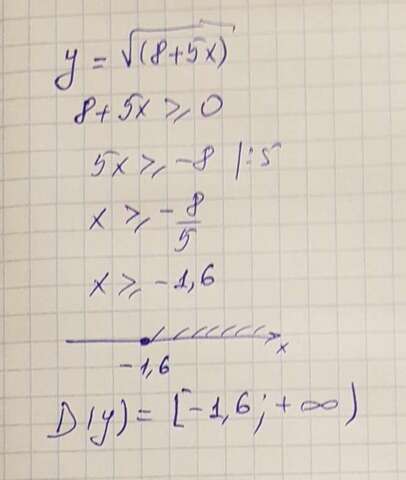 y = √(8+5x)
8+5x ⩾ 0
5x ⩾ -8 |:5
x ⩾ -8/5
x ⩾ -1,6
-1,6 x
D(y) = [-1,6; +∞)